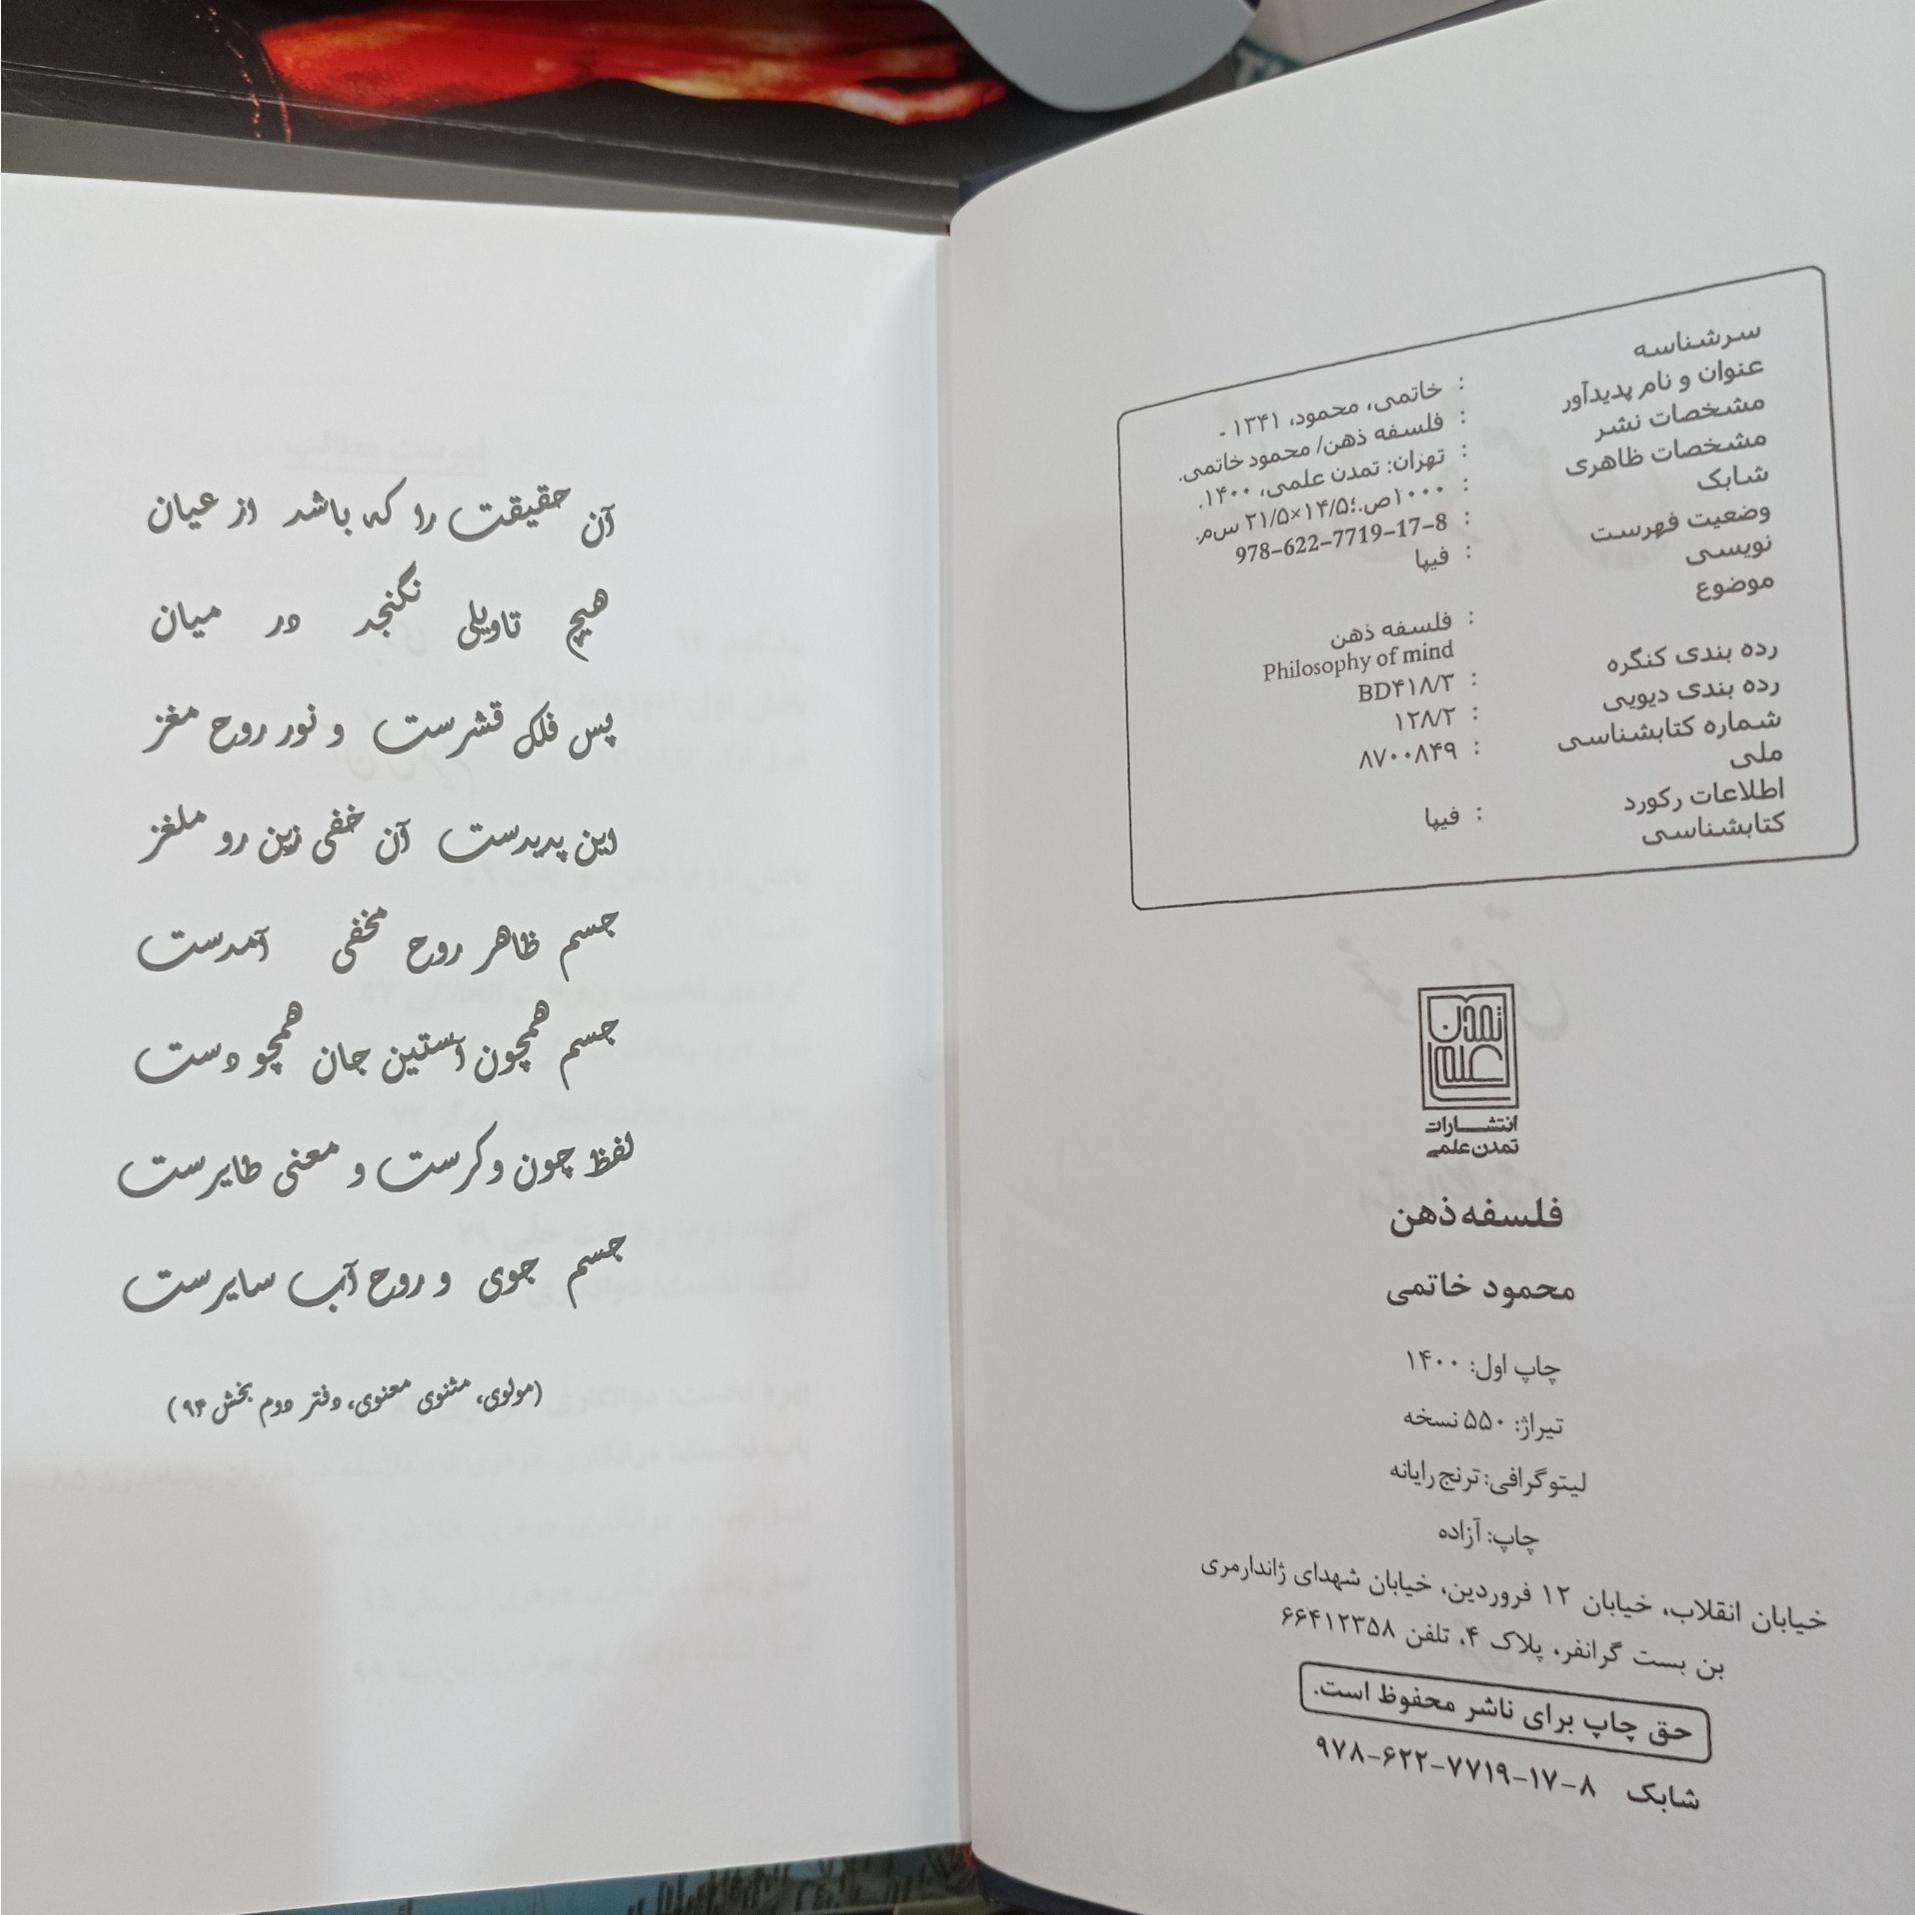 سرشناسه : خاتمی، محمود، ۱۳۴۱ -
عنوان و نام پدیدآور : فلسفه ذهن/ محمود خاتمی.
مشخصات نشر : تهران: تمدن علمی، ۱۴۰۰.
مشخصات ظاهری : ۱۰۰۰ص.؛۱۴/۵×۲۱/۵ س‌م.
شابک : 978-622-7719-17-8
وضعیت فهرست : فیپا
نویسی
موضوع : فلسفه ذهن
Philosophy of mind
رده بندی کنگره : BD۴۱۸/۳
رده بندی دیویی : ۱۲۸/۲
شماره کتابشناسی : ۸۷۰۰۸۴۹
ملی
اطلاعات رکورد : فیپا
کتابشناسی
تمدن
علمی
انتشارات
تمدن علمی
فلسفه ذهن
محمود خاتمی
چاپ اول: ۱۴۰۰
تیراژ: ۵۵۰ نسخه
لیتوگرافی: ترنج رایانه
چاپ: آزاده
خیابان انقلاب، خیابان ۱۲ فروردین، خیابان شهدای ژاندارمری
بن بست گرانفر، پلاک ۴، تلفن ۶۶۴۱۲۳۵۸
حق چاپ برای ناشر محفوظ است.
شابک ۸-۱۷-۷۷۱۹-۶۲۲-۹۷۸
آن حقیقت را که باشد از عیان
هیچ تاویلی نگنجد در میان
پس فلک قشرست و نور روح مغز
این پدیدست آن خفی زین رو ملغز
جسم ظاهر روح مخفی آمدست
جسم همچون آستین جان همچو دست
لفظ چون وکرست و معنی طایرست
جسم جوی و روح آب سایرست
(مولوی، مثنوی معنوی، دفتر دوم بخش ۹۴)